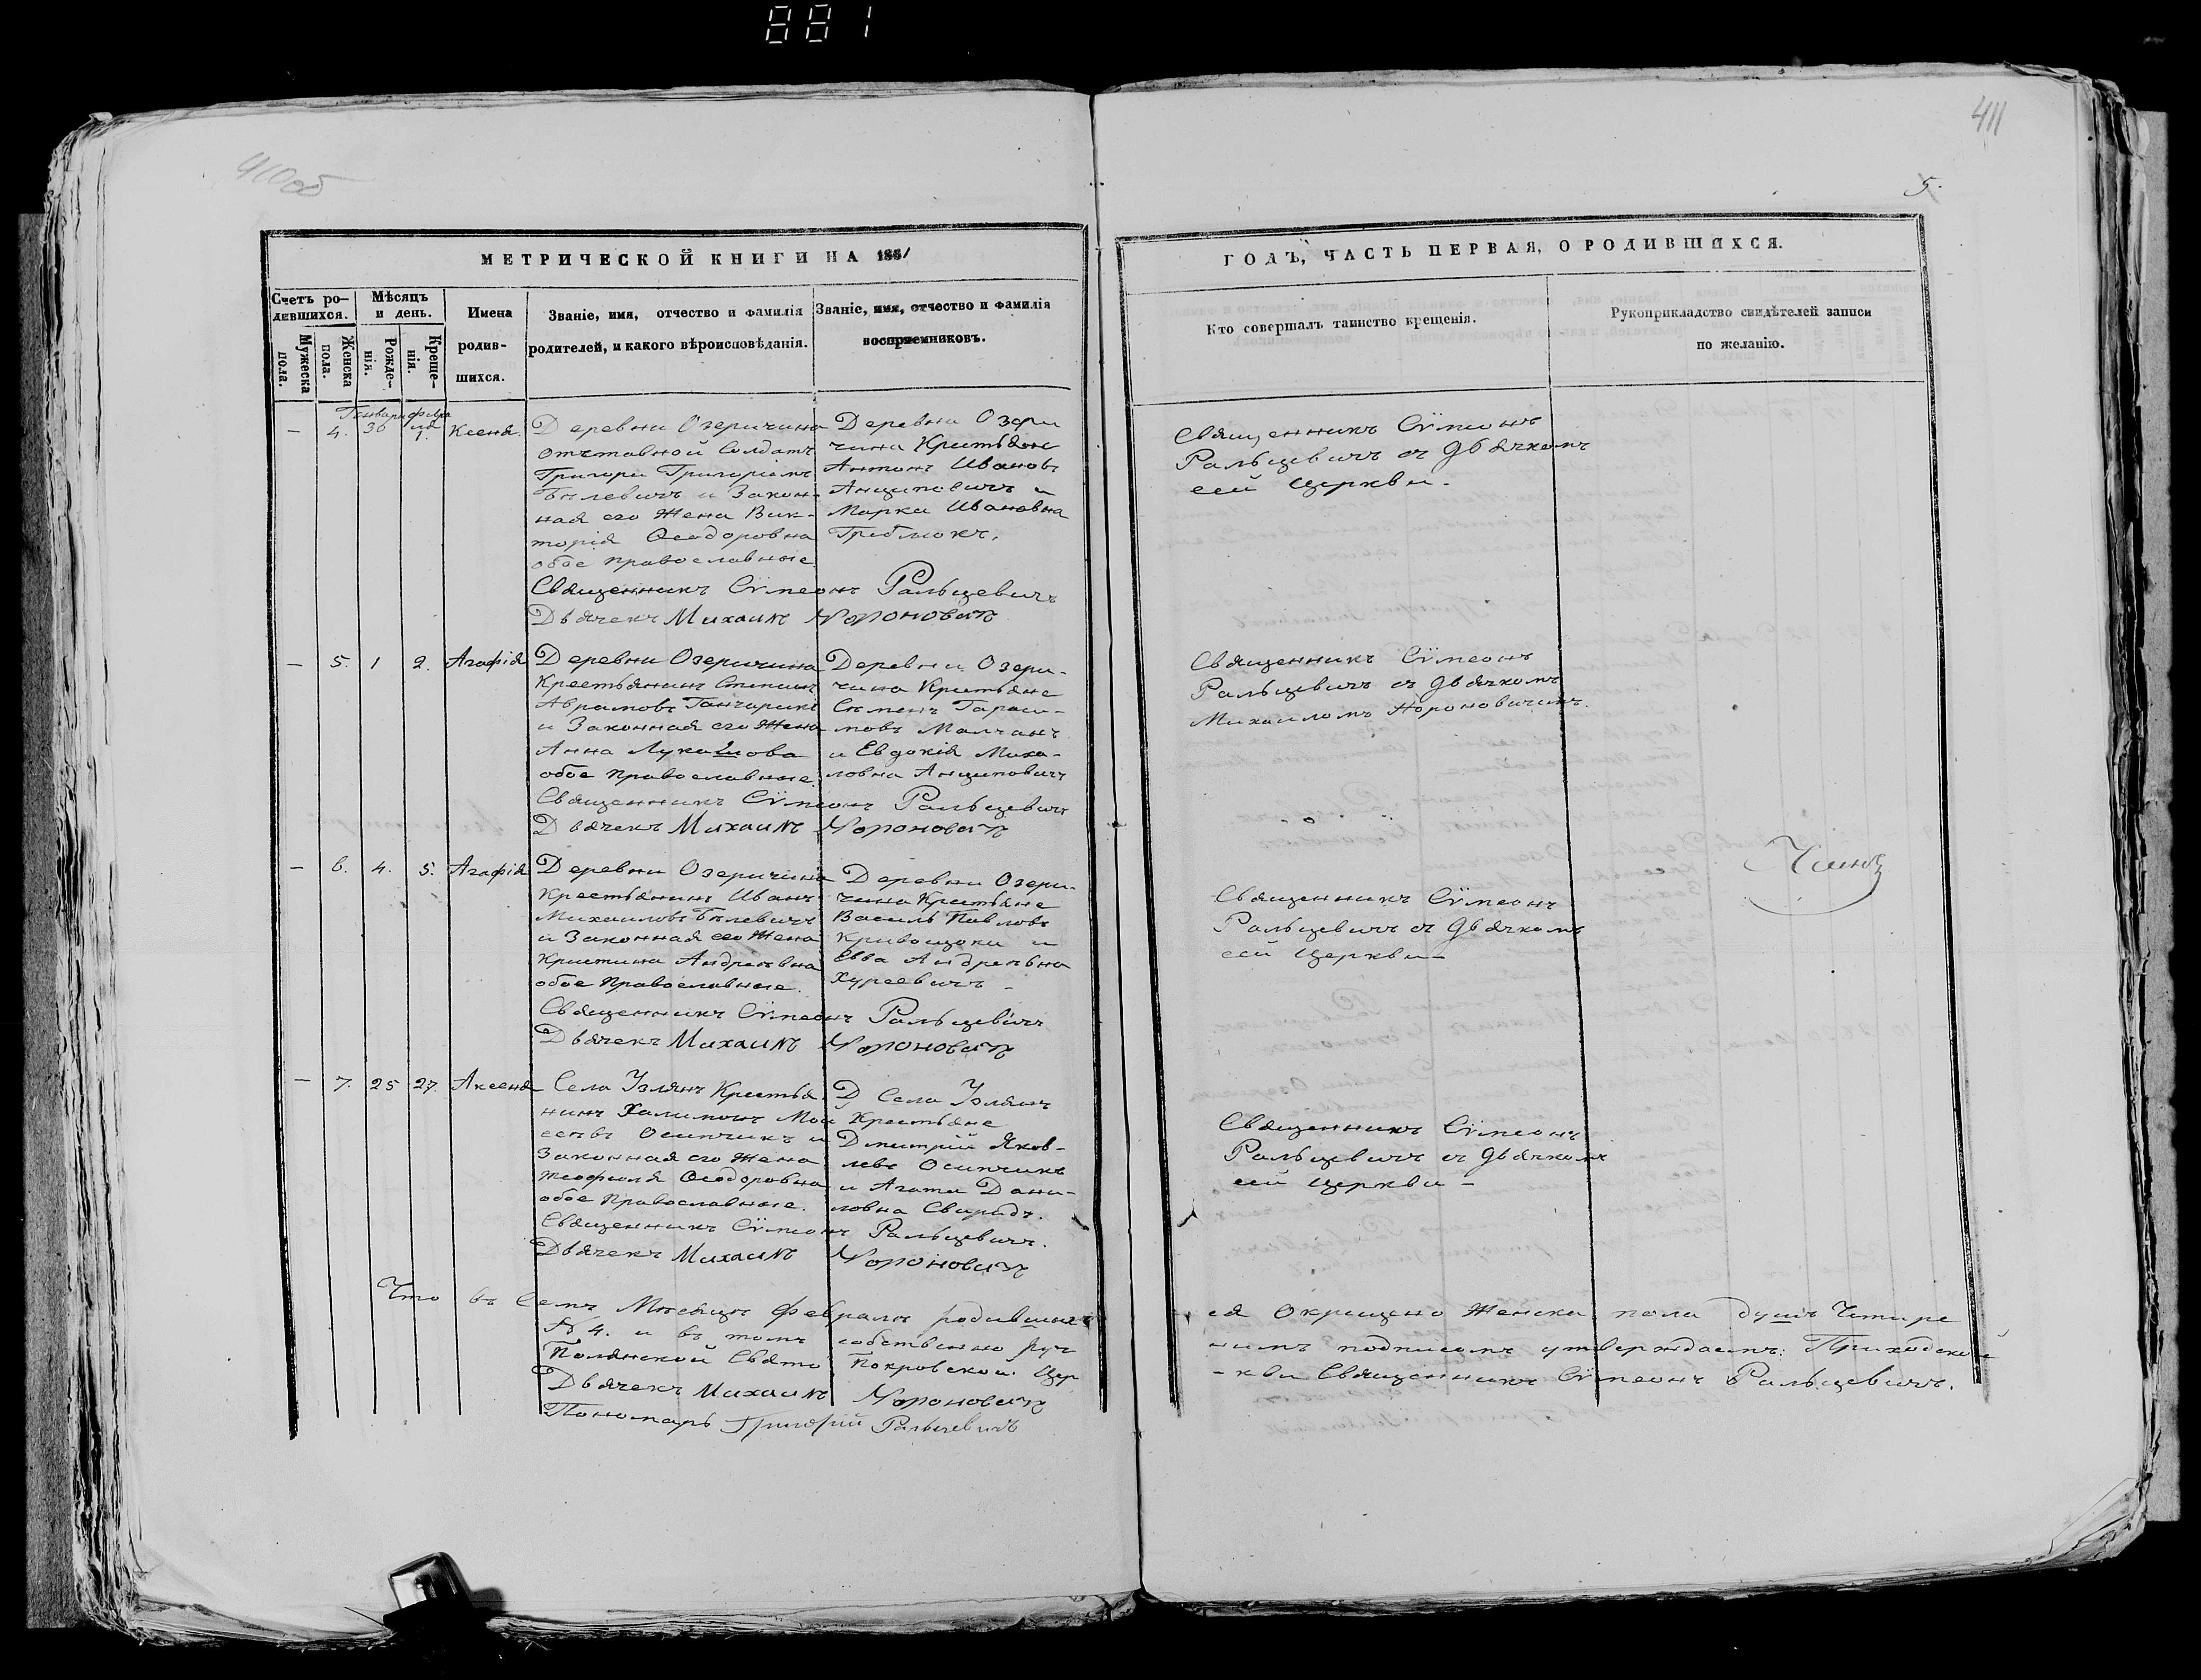 881
411
410 об
5.
МЕТРИЧЕСКОЙ КНИГИ НА 1861
ГОДЪ, ЧАСТЬ ПЕРВАЯ, О РОДИВШИХСЯ.
Счетъ родившихся.
Мужеска пола.
Женска пола.
Мѣсяцъ и день.
Рожденія.
Крещенія.
Имена родившихся.
Званіе, имя, отчество и фамилія родителей, и какого вѣроисповѣданія.
Званіе, имя, отчество и фамилія воспріемниковъ.
Кто совершалъ таинство крещенія.
Рукоприкладство свидѣтелей записи по желанію.
— 4. 30 1. Ксенія
Деревни Озеричина
отставной Солдатъ
Григори Григоріевъ
Бѣлевичъ и Закон-
ная его Жена Вик-
торія Ѳеодоровна
обое православные
Деревни Озери
чина Крестьяне
Антонъ Ивановъ
Анциповичъ и
Марка Ивановна
Священникъ Сѵмеонъ Ральцевичъ
Дьячекъ Михаилъ
Священникъ Сѵмеонъ
Ральцевичъ съ дьячкомъ
сей Церкви.
— 5. 1 2. Агафія
Деревни Озеричина
Крестьянинъ
Абрамовъ Ганчарикъ
и Законная его Жена
Анна Лукашова
обое Православные
Деревни Озери-
чина Крестьяне
Семенъ Гараси-
мовъ Малчанъ
и Евдокія Миха-
ловна Анциповичъ
Священникъ Сѵмеонъ Ральцевичъ
Дьячекъ Михаилъ
Священникъ Сѵмеонъ
Ральцевичъ съ дьячкомъ
Михаиломъ
— 6. 4. 5. Агафія
Деревни Озеричина
Крестьянинъ Иванъ
Михаиловъ Бѣлевичъ
и Законная его Жена
Кристина Андреевна
обое Православные.
Деревни Озери-
чина Крестьяне
Василь Павловъ
Кривощоки и
Евва Андреевна
Хурсевичъ -
Священникъ Сѵмеонъ Ральцевичъ
Дьячекъ Михаилъ
Священникъ Сѵмеонъ
Ральцевичъ съ дьячкомъ
сей Церкви -
— 7. 25 27. Аксенія
Села Узлянъ Крестья
нинъ Халимонъ Мои
сеевъ Осипчикъ и
Законная его Жена
Ѳеодоровна
обое Православные.
Села Узлянъ
Крестьяне
Дмитрій Яков-
левъ Осипчикъ
и Агата Дани-
ловна Свиридъ.
Священникъ Сѵмеонъ Ральцевичъ.
Дьячекъ Михаилъ
Священникъ Сѵмеонъ
Ральцевичъ съ дьячкомъ
сей Церкви -
Что въ семъ Мѣсяцѣ Февралѣ родивших
ся окрещено Женска пола душъ Четыре
№ 4. и въ томъ собственно руч
нымъ подписомъ утверждаемъ: Приходской
Полянской Свято Покровской Цер
-кви Священникъ Сѵмеонъ Ральцевичъ.
Дьячекъ Михаилъ
Пономарь Григорій Ральцевичъ